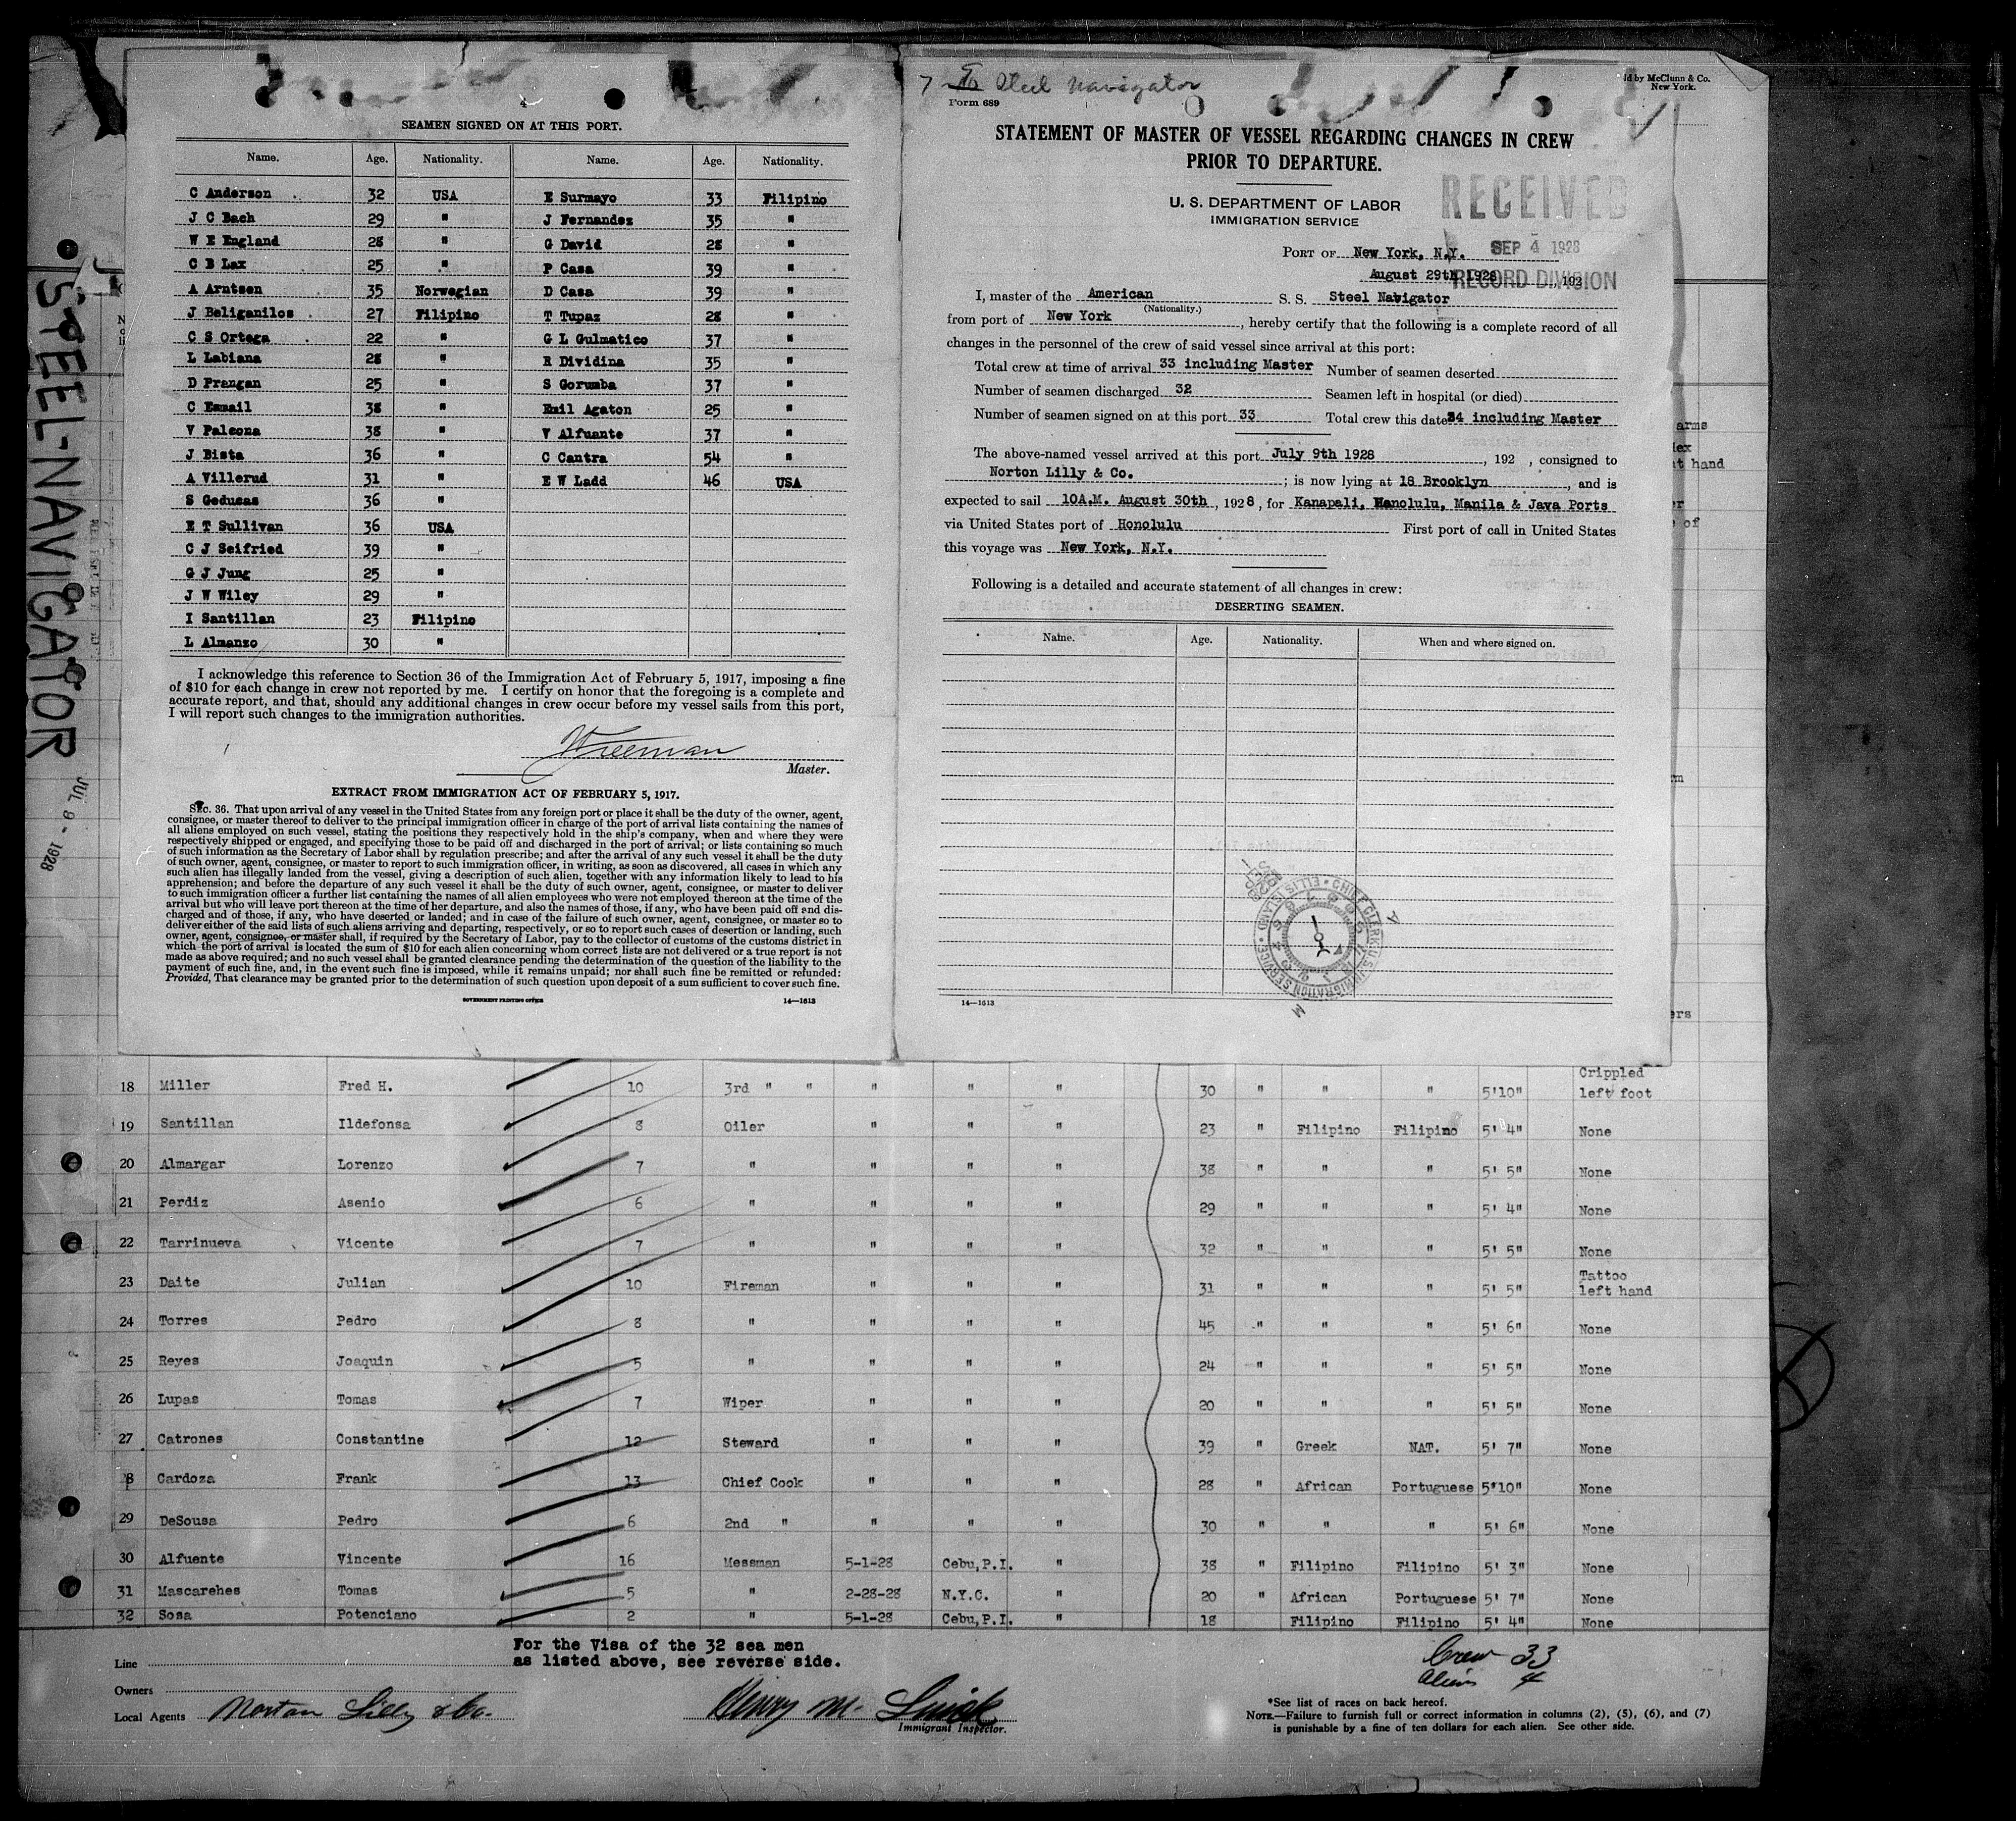 STEEL-NAVIGATOR
JUL 9 - 1928
4
SEAMEN SIGNED ON AT THIS PORT.
Name. Age. Nationality. Name. Age. Nationality.
C Anderson 32 USA E Surmayo 33 Filipino
J C Bach 29 " J Fernandez 35 "
W E England 28 " G David 28 "
C B Lax 25 " P Casa 39 "
A Arntsen 35 Norwegian D Casa 39 "
J Beliganilos 27 Filipino T Tupaz 28 "
C S Ortega 22 " G L Gulmatico 37 "
L Labiana 28 " R Dividina 35 "
D Prangan 25 " S Gorumba 37 "
C Esmail 38 " Emil Agaton 25 "
V Palcona 38 " V Alfuante 37 "
J Bista 36 " C Cantra 54 "
A Villerud 31 " E W Ladd 46 USA
S Geducas 36 "
E T Sullivan 36 USA
C J Seifried 39 "
G J Jung 25 "
J W Wiley 29 "
I Santillan 23 Filipino
L Almanzo 30 "
I acknowledge this reference to Section 36 of the Immigration Act of February 5, 1917, imposing a fine
of $10 for each change in crew not reported by me. I certify on honor that the foregoing is a complete and
accurate report, and that, should any additional changes in crew occur before my vessel sails from this port,
I will report such changes to the immigration authorities.
Master.
EXTRACT FROM IMMIGRATION ACT OF FEBRUARY 5, 1917.
Sec. 36. That upon arrival of any vessel in the United States from any foreign port or place it shall be the duty of the owner, agent,
consignee, or master thereof to deliver to the principal immigration officer in charge of the port of arrival lists containing the names of
all aliens employed on such vessel, stating the positions they respectively hold in the ship's company, when and where they were
respectively shipped or engaged, and specifying those to be paid off and discharged in the port of arrival; or lists containing so much
of such information as the Secretary of Labor shall by regulation prescribe; and after the arrival of any such vessel it shall be the duty
of such owner, agent, consignee, or master to report to such immigration officer, in writing, as soon as discovered, all cases in which any
such alien has illegally landed from the vessel, giving a description of such alien, together with any information likely to lead to his
apprehension; and before the departure of any such vessel it shall be the duty of such owner, agent, consignee, or master to deliver
to such immigration officer a further list containing the names of all alien employees who were not employed thereon at the time of the
arrival but who will leave port thereon at the time of her departure, and also the names of those, if any, who have been paid off and dis-
charged and of those, if any, who have deserted or landed; and in case of the failure of such owner, agent, consignee, or master so to
deliver either of the said lists of such aliens arriving and departing, respectively, or so to report such cases of desertion or landing, such
owner, agent, consignee, or master shall, if required by the Secretary of Labor, pay to the collector of customs of the customs district in
which the port of arrival is located the sum of $10 for each alien concerning whom correct lists are not delivered or a true report is not
made as above required; and no such vessel shall be granted clearance pending the determination of the question of the liability to the
payment of such fine, and, in the event such fine is imposed, while it remains unpaid; nor shall such fine be remitted or refunded:
Provided, That clearance may be granted prior to the determination of such question upon deposit of a sum sufficient to cover such fine.
GOVERNMENT PRINTING OFFICE 14—1613
Steel Navigator
Form 689
ld by McClunn & Co.
New York.
STATEMENT OF MASTER OF VESSEL REGARDING CHANGES IN CREW
PRIOR TO DEPARTURE.
RECEIVED
SEP 4 1928
RECORD DIVISION
U. S. DEPARTMENT OF LABOR
IMMIGRATION SERVICE
PORT OF New York, N.Y.
August 29th 1928, 192
I, master of the American S. S. Steel Navigator
(Nationality.)
from port of New York, hereby certify that the following is a complete record of all
changes in the personnel of the crew of said vessel since arrival at this port:
Total crew at time of arrival 33 including Master Number of seamen deserted
Number of seamen discharged 32 Seamen left in hospital (or died)
Number of seamen signed on at this port 33 Total crew this date 34 including Master
The above-named vessel arrived at this port July 9th 1928, 192 , consigned to
Norton Lilly & Co. ; is now lying at 18 Brooklyn, and is
expected to sail 10A.M. August 30th, 1928, for Kanapali, Honolulu, Manila & Java Ports
via United States port of Honolulu First port of call in United States
this voyage was New York, N.Y.
Following is a detailed and accurate statement of all changes in crew:
DESERTING SEAMEN.
Name. Age. Nationality. When and where signed on.
CHIEF CLERK U.S. IMMIGRATION SERVICE ELLIS ISLAND
14—1613
18 Miller Fred H. 10 3rd " " " " " 30 " " " 5'10" Crippled left foot
19 Santillan Ildefonsa 8 Oiler " " " 23 " Filipino Filipino 5' 4" None
20 Almargar Lorenzo 7 " " " " 38 " " " 5' 5" None
21 Perdiz Asenio 6 " " " " 29 " " " 5' 4" None
22 Tarrinueva Vicente 7 " " " " 32 " " " 5' 5" None
23 Daite Julian 10 Fireman " " " 31 " " " 5' 5" Tattoo left hand
24 Torres Pedro 8 " " " " 45 " " " 5' 6" None
25 Reyes Joaquin 5 " " " " 24 " " " 5' 5" None
26 Lupas Tomas 7 Wiper " " " 20 " " " 5' 5" None
27 Catrones Constantine 12 Steward " " " 39 " Greek NAT. 5' 7" None
8 Cardoza Frank 13 Chief Cook " " " 28 " African Portuguese 5'10" None
29 DeSousa Pedro 6 2nd " " " " 30 " " " 5' 6" None
30 Alfuente Vincente 16 Messman 5-1-28 Cebu,P.I. " 38 " Filipino Filipino 5' 3" None
31 Mascarehes Tomas 5 " 2-28-28 N.Y.C. " 20 " African Portuguese 5' 7" None
32 Sosa Potenciano 2 " 5-1-28 Cebu,P.I. " 18 Filipino Filipino 5' 4" None
For the Visa of the 32 sea men
as listed above, see reverse side.
Line
Owners
Local Agents Norton Lilly & Co.
Immigrant Inspector.
Crew 33
Aliens 4
*See list of races on back hereof.
NOTE.—Failure to furnish full or correct information in columns (2), (5), (6), and (7)
is punishable by a fine of ten dollars for each alien. See other side.